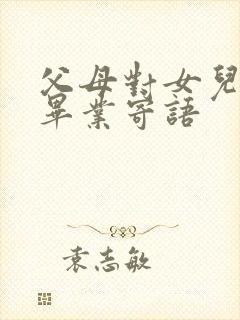 父母對女兒
畢業寄語
袁志敏